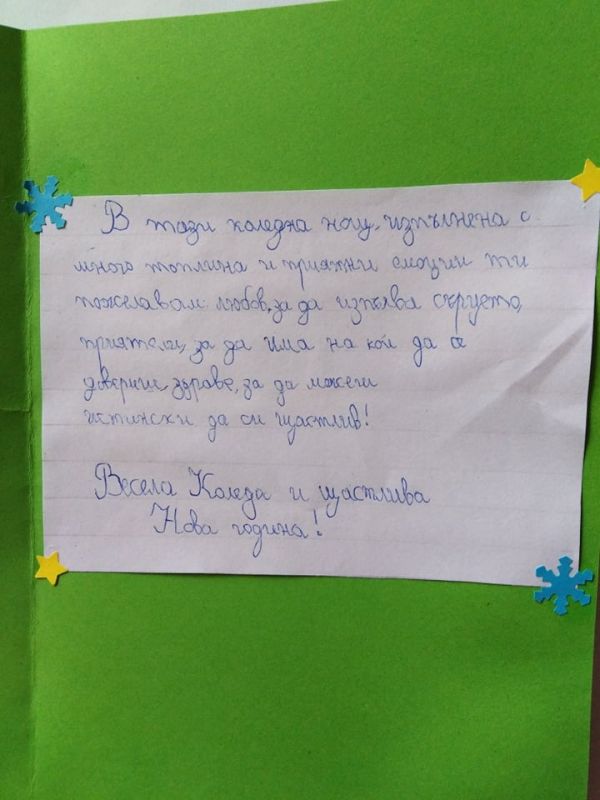 В тази коледна нощ, изпълнена с
много топлина и приятни емоции ти
пожелавам: любов, за да изпълва сърцето,
приятели, за да има на кой да се
довериш, здраве, за да можеш
истински да си щастлив!
Весела Коледа и щастлива
Нова година!